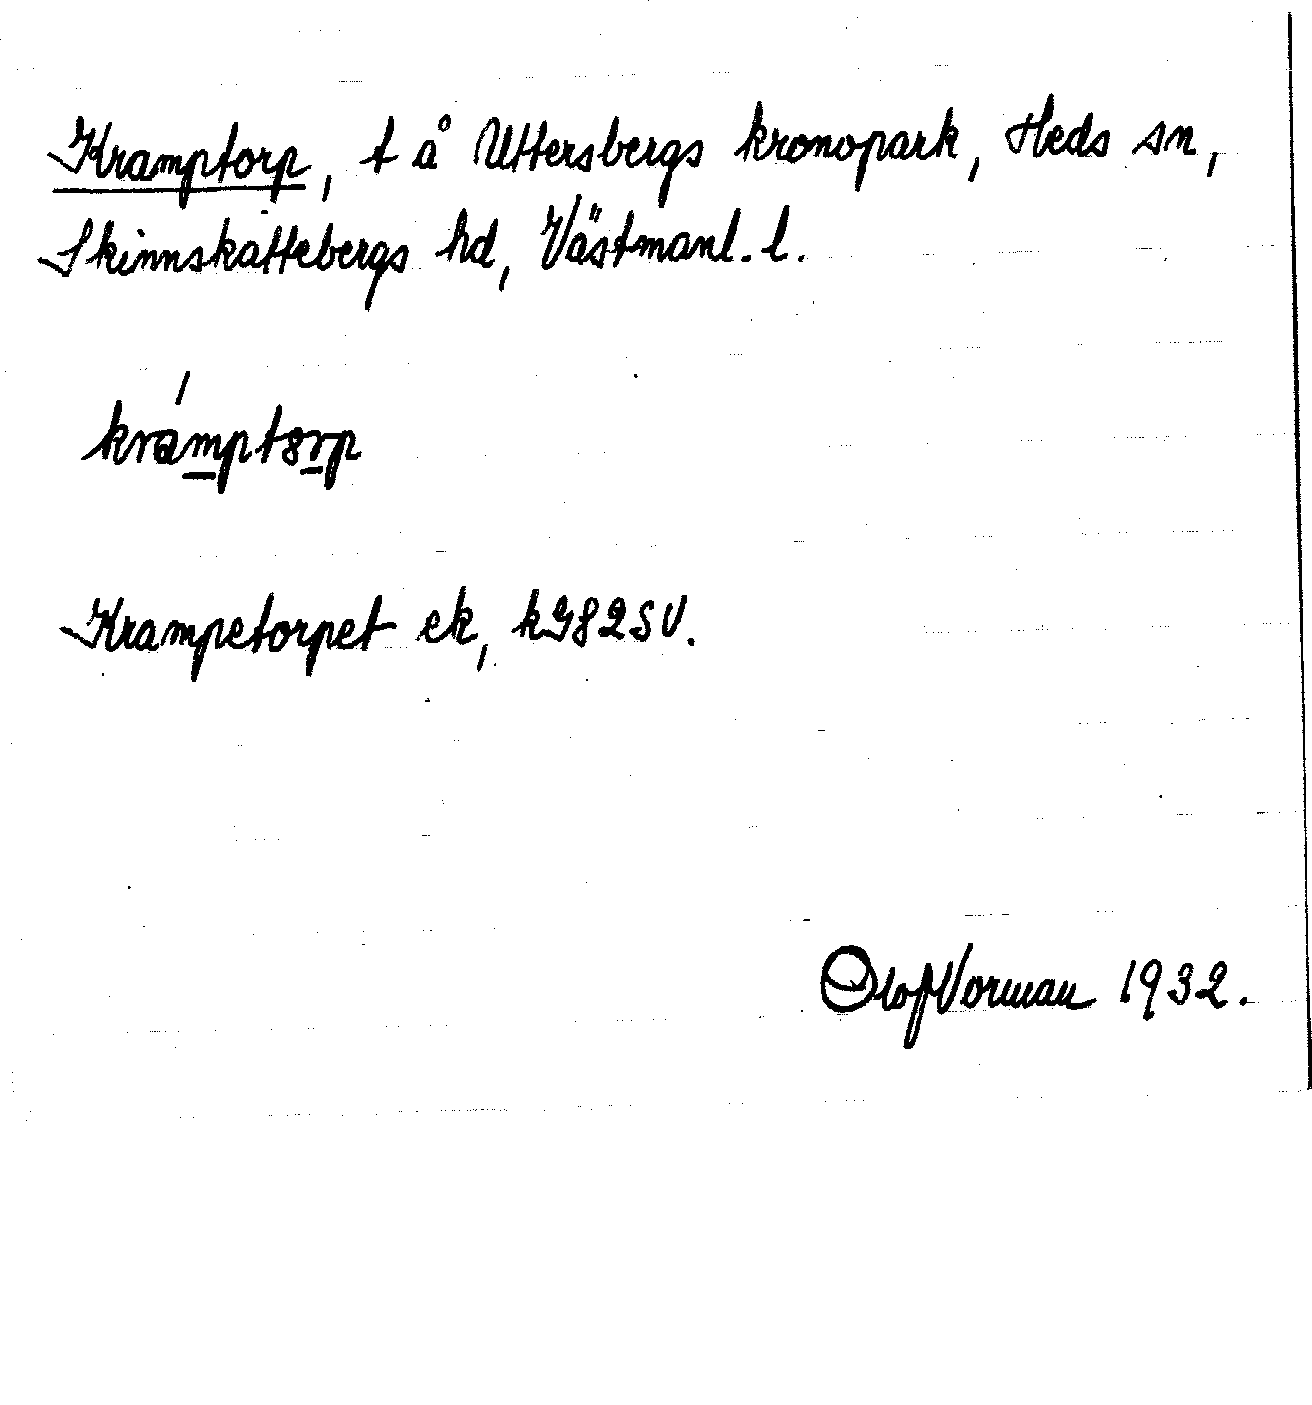 Kramptorp, t å Uttersbergs kronopark, Heds sn,
Skinnskattebergs hd, Västmanl. l.
krámptorp
Krampetorpet ek, kG82SV.
Olof Vorman 1932.